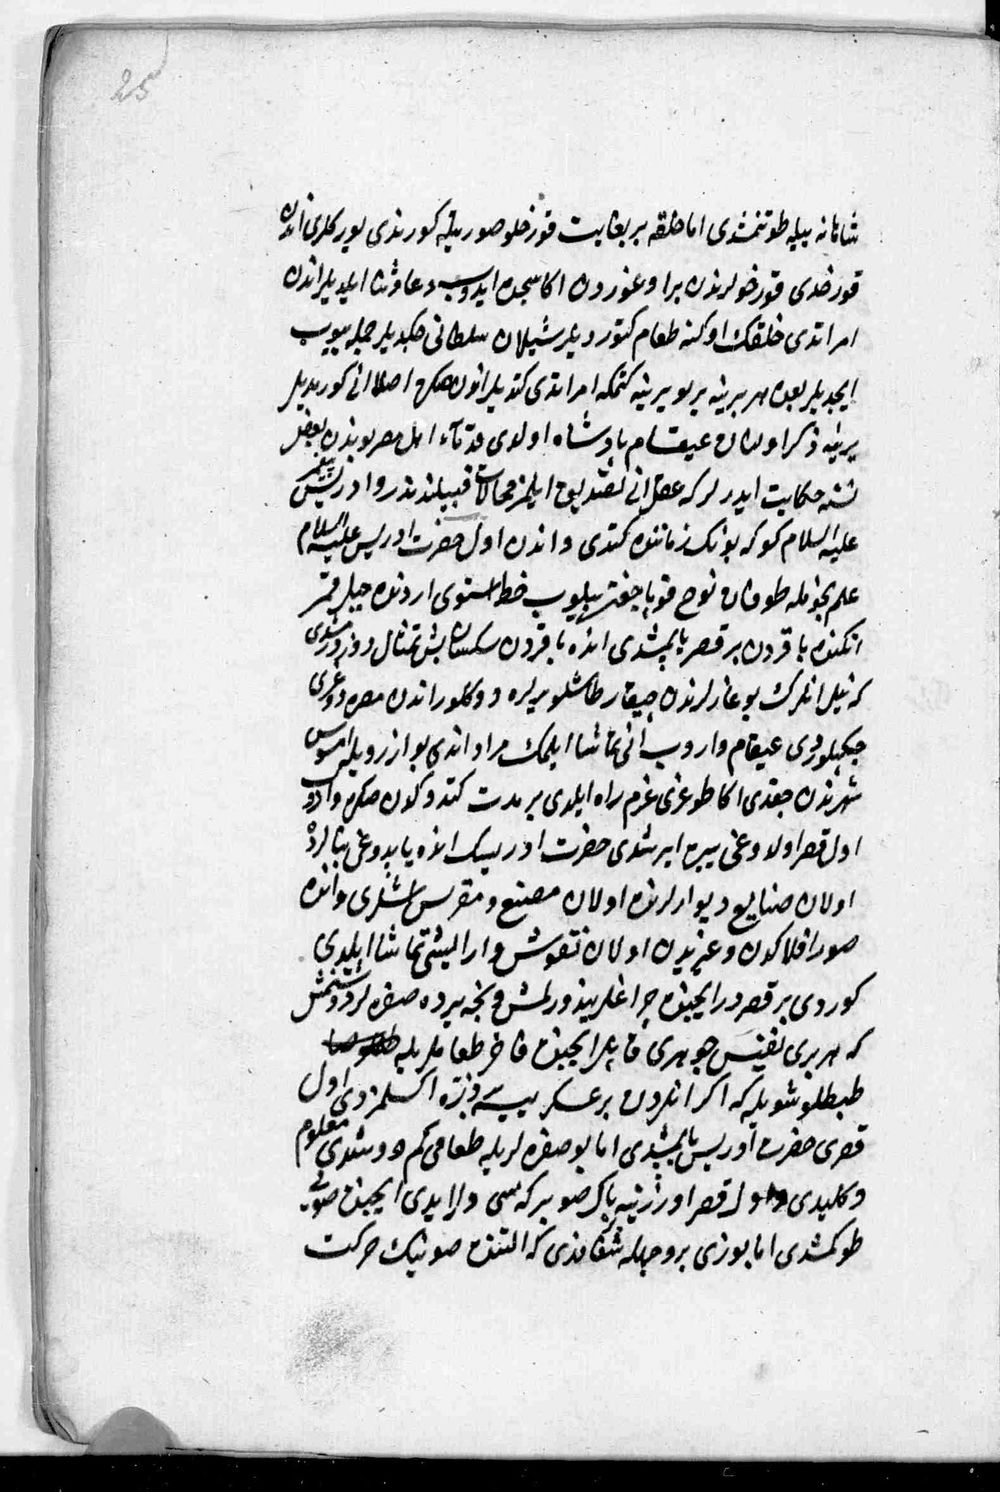 25
شاهانه بیله طوتنمشدی اما خلقه بر بغایت قورخلو صورتله کورندی یورکلری اندن
قورخدی قورخولرندن براوغوردن اکا سجده ایدوب دعا وثنا ایلدیلر اندن
امر اتدی خلقك اوکنه طعام کتوردیلر شیلان سلطانی چکدیلر جمله ییوب
ایچدیلر بعده هر برینه یرلو یرینه کتمکه امر اتدی کتدیلر انی کوردیلر
یرینه ذکر اولنان عیقام پادشاه اولدی قدماء اهل مصر بوندن بعض
نسنه حکایت ایدرلر که عقل انی تصدیق ایلمز محالات قبیلندندر و ادریس
علیه السلام کوکه بونك زماننده کتدی و اندن اول حضرت ادریس علیه السلام
علم نجومله طوفان نوح قوپاجغن بیلوب خط استوی اردنده جبل قمر
اتکنده باقردن بر قصر یاپمشدی انده باقردن سکسان بش تمثال دوزدرمشدی
که نیل انلرك بوغازلرندن چیقار طاشلو یرلره دوکلور اندن مصره دوغری
چکیلوردی عیقام واروب انی تماشا ایلمك مراد اندی بو ارزو یله امسوس
شهرندن چقدی اکا طوغری عزم راه ایلدی بر مدت کتدوکدن صکره واردی
اول قصر اولدوغی یره ایرشدی حضرت ادریسك انده یاپدوغی بنالرده
اولان صنایع دیوارلرنده اولان مصنع و مقرنس اشلری و انده
صور افلاکدن و غیریدن اولان نقوش و ارایشی تماشا ایلدی
کوردی بر قصردر ایچنده چراغلر یندورلمش و نجه یرده صفره لر دوشنمش
که هر بری نفیس جوهری قابلر ایچنده فاخر طعاملر یله
طبطلو شویله که اکر انلردن بر عسکر ییسه ذره اکسلمزدی اول
قصری حضرت ادریس یاپمشدی اما بو صفره لر یله طعامی کم دوشدی معلوم
دکلیدی و اول قصر اورزینه پاك صو برکه سی ولا یدی ایچنده صوی
طوکمشدی اما یوزی بر وجهله شفافدی که التنده صونك حرکت